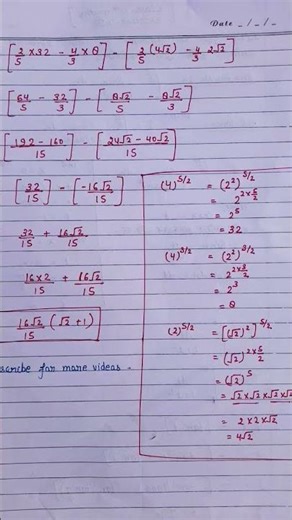 Date _/_/_
[2/5 × 32 - 4/3 × 8] - [2/5 (4√2) - 4/3 2√2]
[64/5 - 32/3] - [8√2/5 - 8√2/3]
[192 - 160/15] - [24√2 - 40√2/15]
[32/15] - [-16√2/15]
32/15 + 16√2/15
16×2/15 + 16√2/15
16√2/15 (√2 + 1)
for more videos.
(4)^5/2 = (2²)^5/2
= 2^2×5/2
= 2⁵
= 32
(4)^3/2 = (2²)^3/2
= 2^2×3/2
= 2³
= 8
(2)^5/2 = [(√2)²]^5/2
= (√2)^2×5/2
= (√2)⁵
= √2×√2×√2×√2
= 2×2×√2
= 4√2